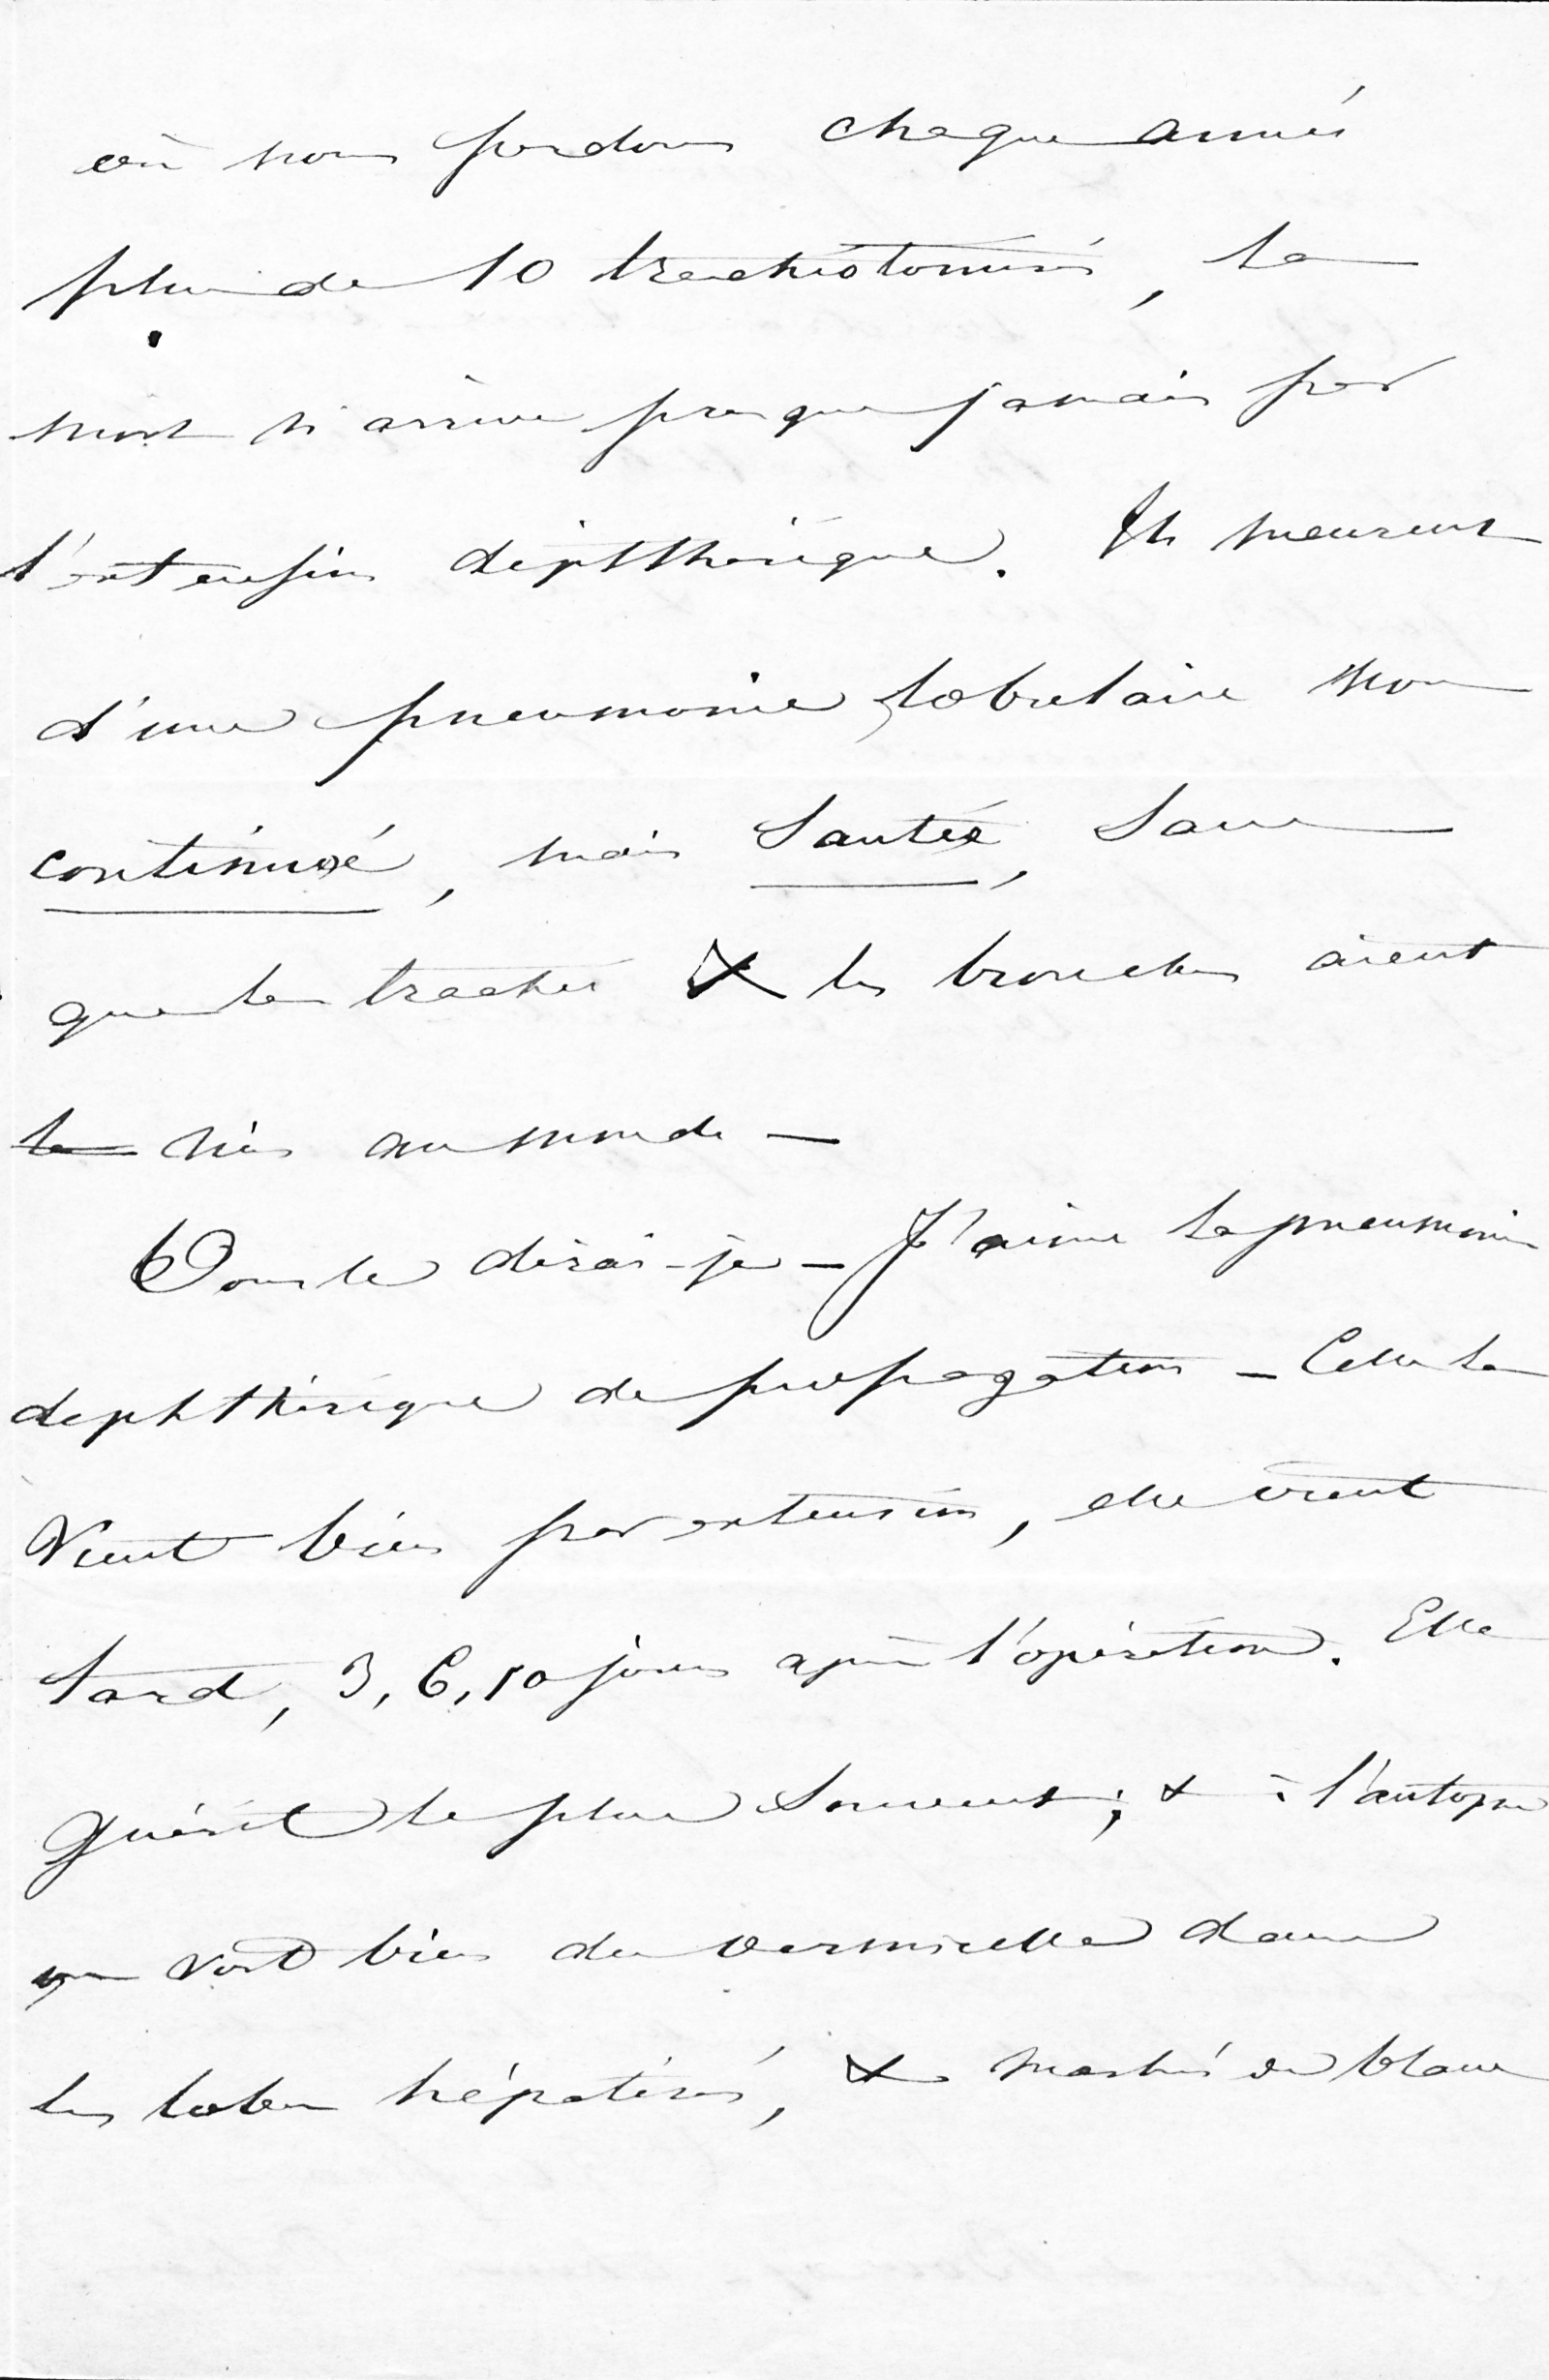 où nous perdons chaque année
plus de 10 trachéotomisés, la
mort n'arrive presque jamais par
l'extension diphthérique. Ils meurent
d'une pneumonie lobulaire non
continué, mais Sautée, Sans
que la trachée & les bronches aient
la rien au monde —
dirai-je — J'aime la pneumonie
dephthérique de propagation — Celle la
Vient bien par extension, elle vient
tard, 3, 6, 10 jours après l'opération. Elle
Guérit le plus Souvent; & à l'autopsie
on voit bien du vermicelle dans
les lobes hépatisés, & blanc